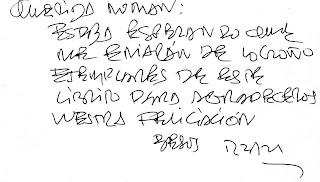 QUERIDA ROMAN:
ESTABA ESPERANDO QUE
ME ENVIARAN DE LOGROÑO
EJEMPLARES DE ESTE
LIBRITO PARA AGRADECEROS
VUESTRA FELICITACIÓN
BESOS